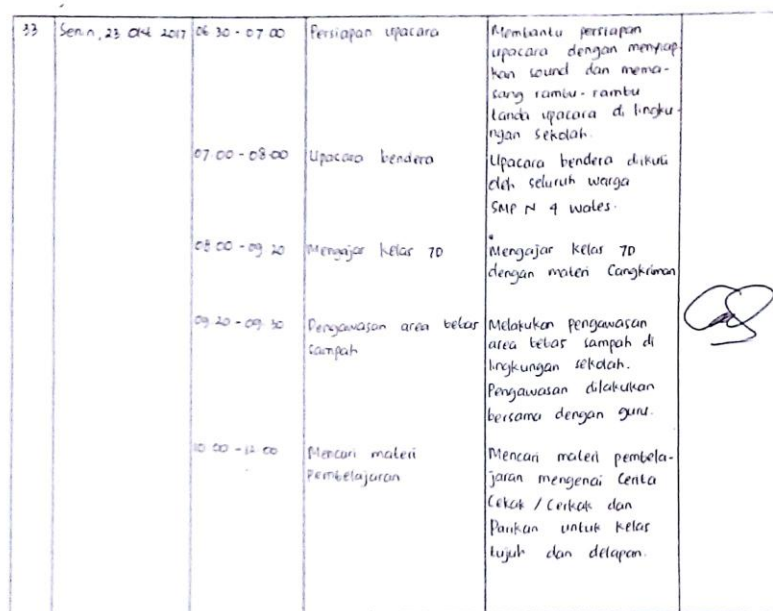 33 Senin, 23 Okt 2017 06.30 - 07.00 Persiapan upacara Membantu persiapan
upacara dengan menyiap
kan sound dan mema-
sang rambu-rambu
tanda upacara di lingku-
ngan sekolah.
07.00 - 08.00 Upacara bendera Upacara bendera diikuti
oleh seluruh warga
SMP N 4 Wates.
08.00 - 09.20 Mengajar kelas 7D Mengajar kelas 7D
dengan materi Cangkriman
09.20 - 09.30 Pengawasan area bebas Melakukan pengawasan
sampah area bebas sampah di
lingkungan sekolah.
Pengawasan dilakukan
bersama dengan guru.
10.00 - 12.00 Mencari materi Mencari materi pembela-
pembelajaran jaran mengenai Cerita
Cekak / Cerkak dan
Parikan untuk kelas
tujuh dan delapan.